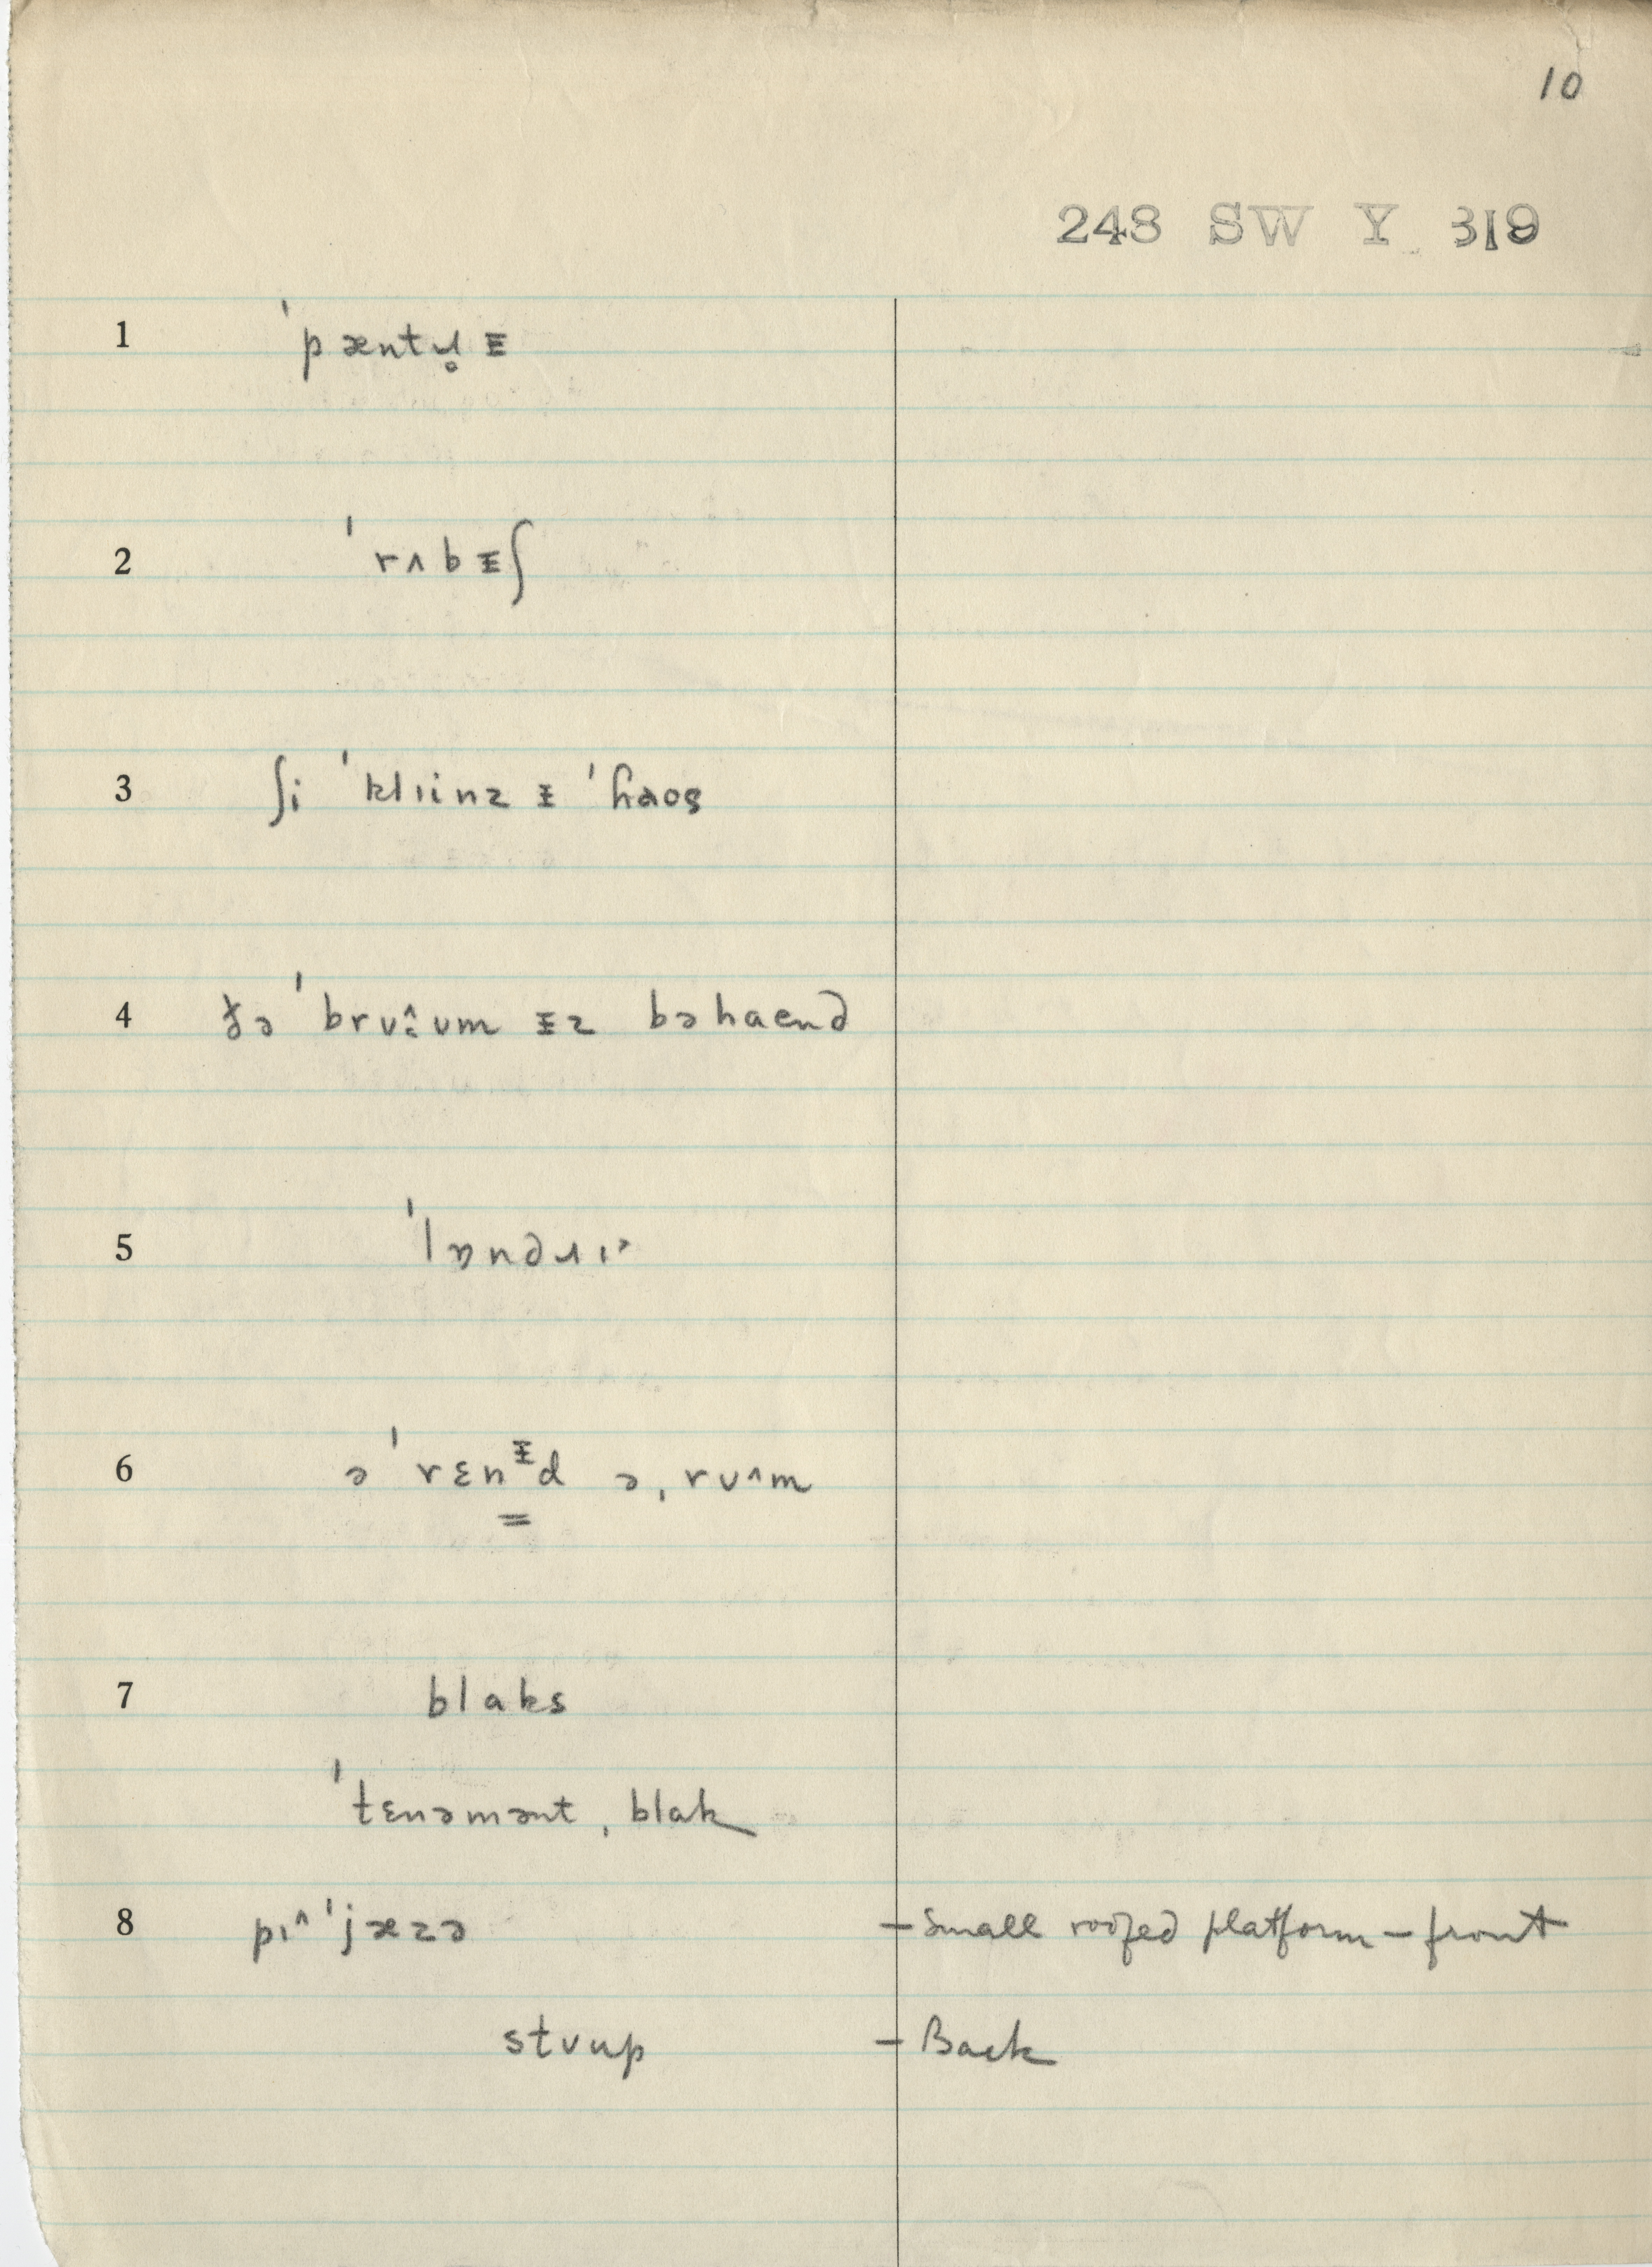 10
248 SW Y 319
1 ˈpæntɹ̥ɪ
2 ˈrʌbɪʃ
3 ʃi ˈklɪinz ɨ ˈɦaos
4 ðə ˈbrʊ˄ʊm ɨz bəhaend
5 ˈlɒndɹɪ˃
6 ə ˈrɛnᵻd ə ˌrʊ˄m
7 blaks
ˈtɛnəmənt ˌblak
8 pɪ˄ˈjæzə – small roofed platform – front
stʊup – Back